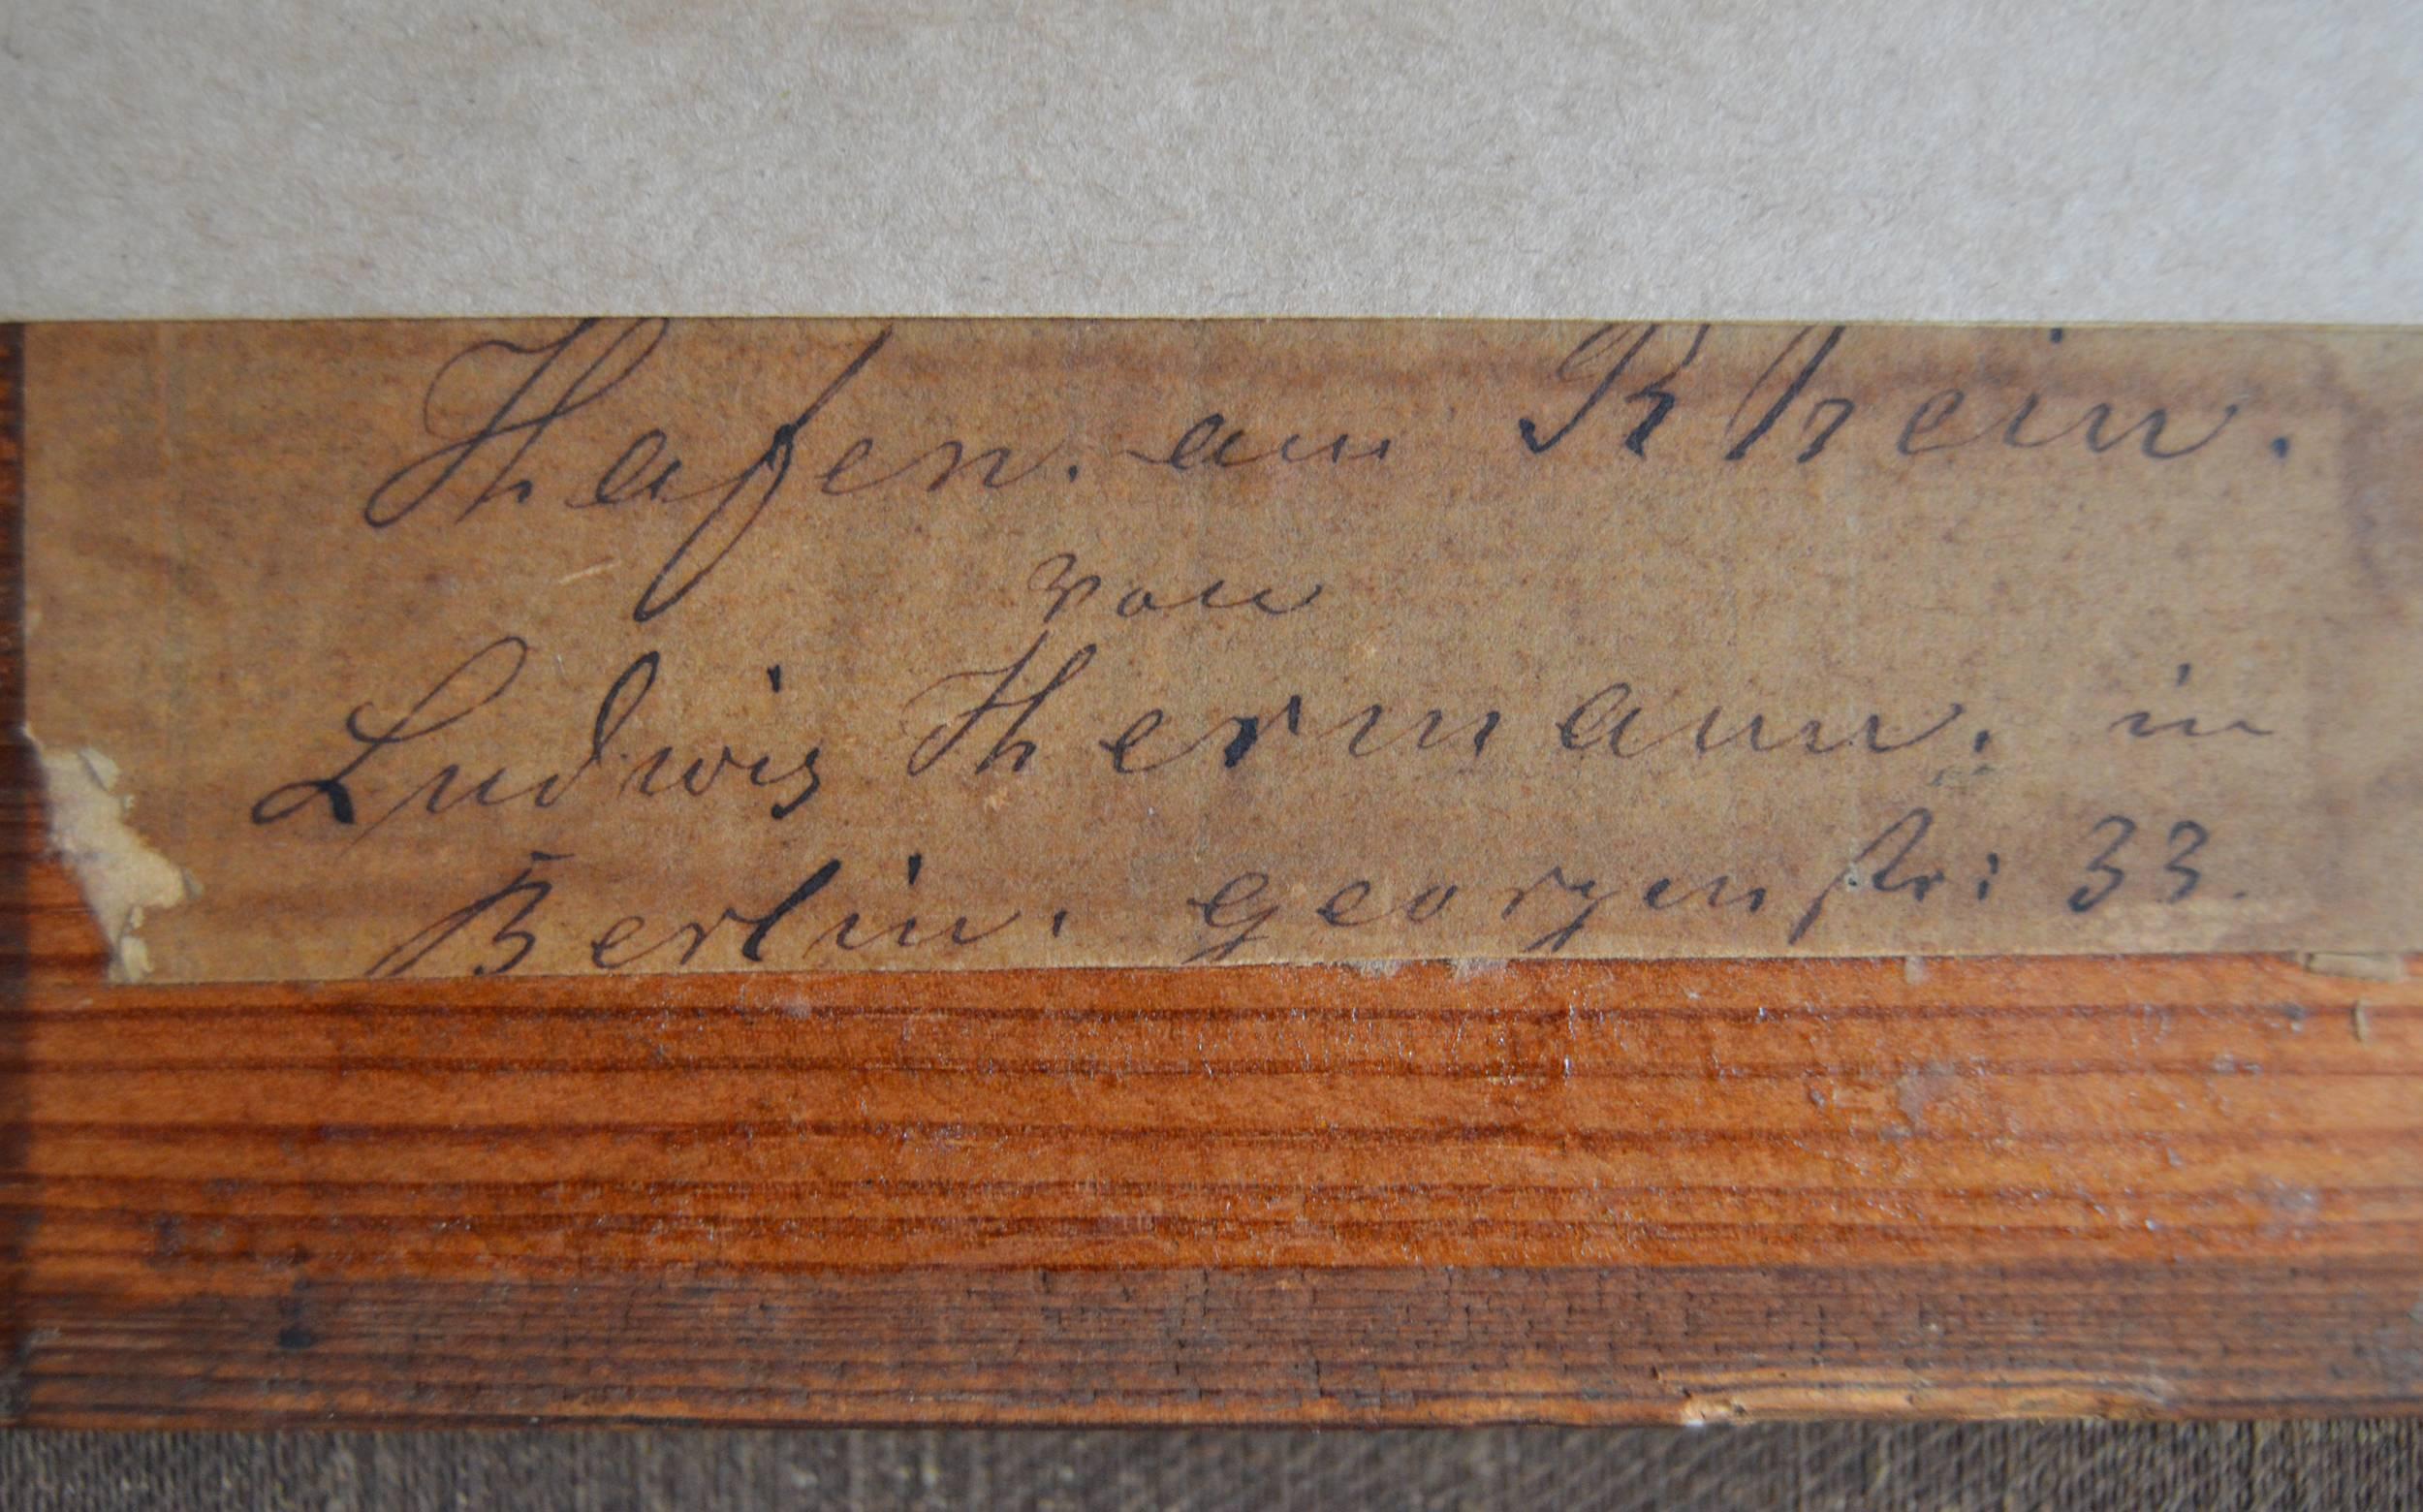 Hafen. am Rhein.
von
Ludwig Hermann. in
Berlin. Georgenstr: 33.